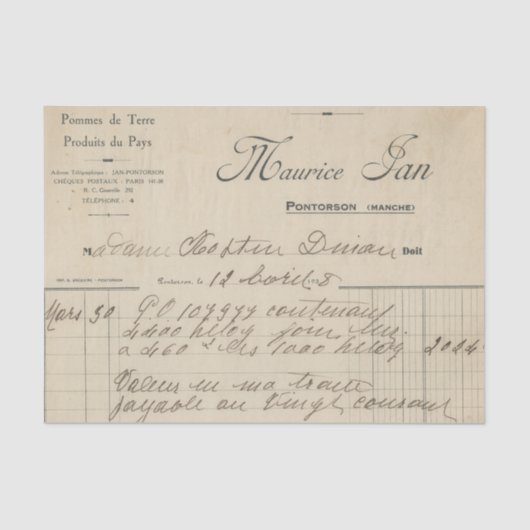 Pommes de Terre
Produits du Pays
Adresse Télégraphique : JAN-PONTORSON
CHÈQUES POSTAUX - PARIS 141-38
R. C. Granville 292
TÉLÉPHONE : 4
Maurice Jan
PONTORSON (MANCHE)
Madame Dinan Doit
Pontorson, le 12 Avril 1938
Mars 30 P.O. 107977 contenant
4400 kilog
a 460 les 1000 kilog 2024
Valeur en ma traite
payable au Vingt courant